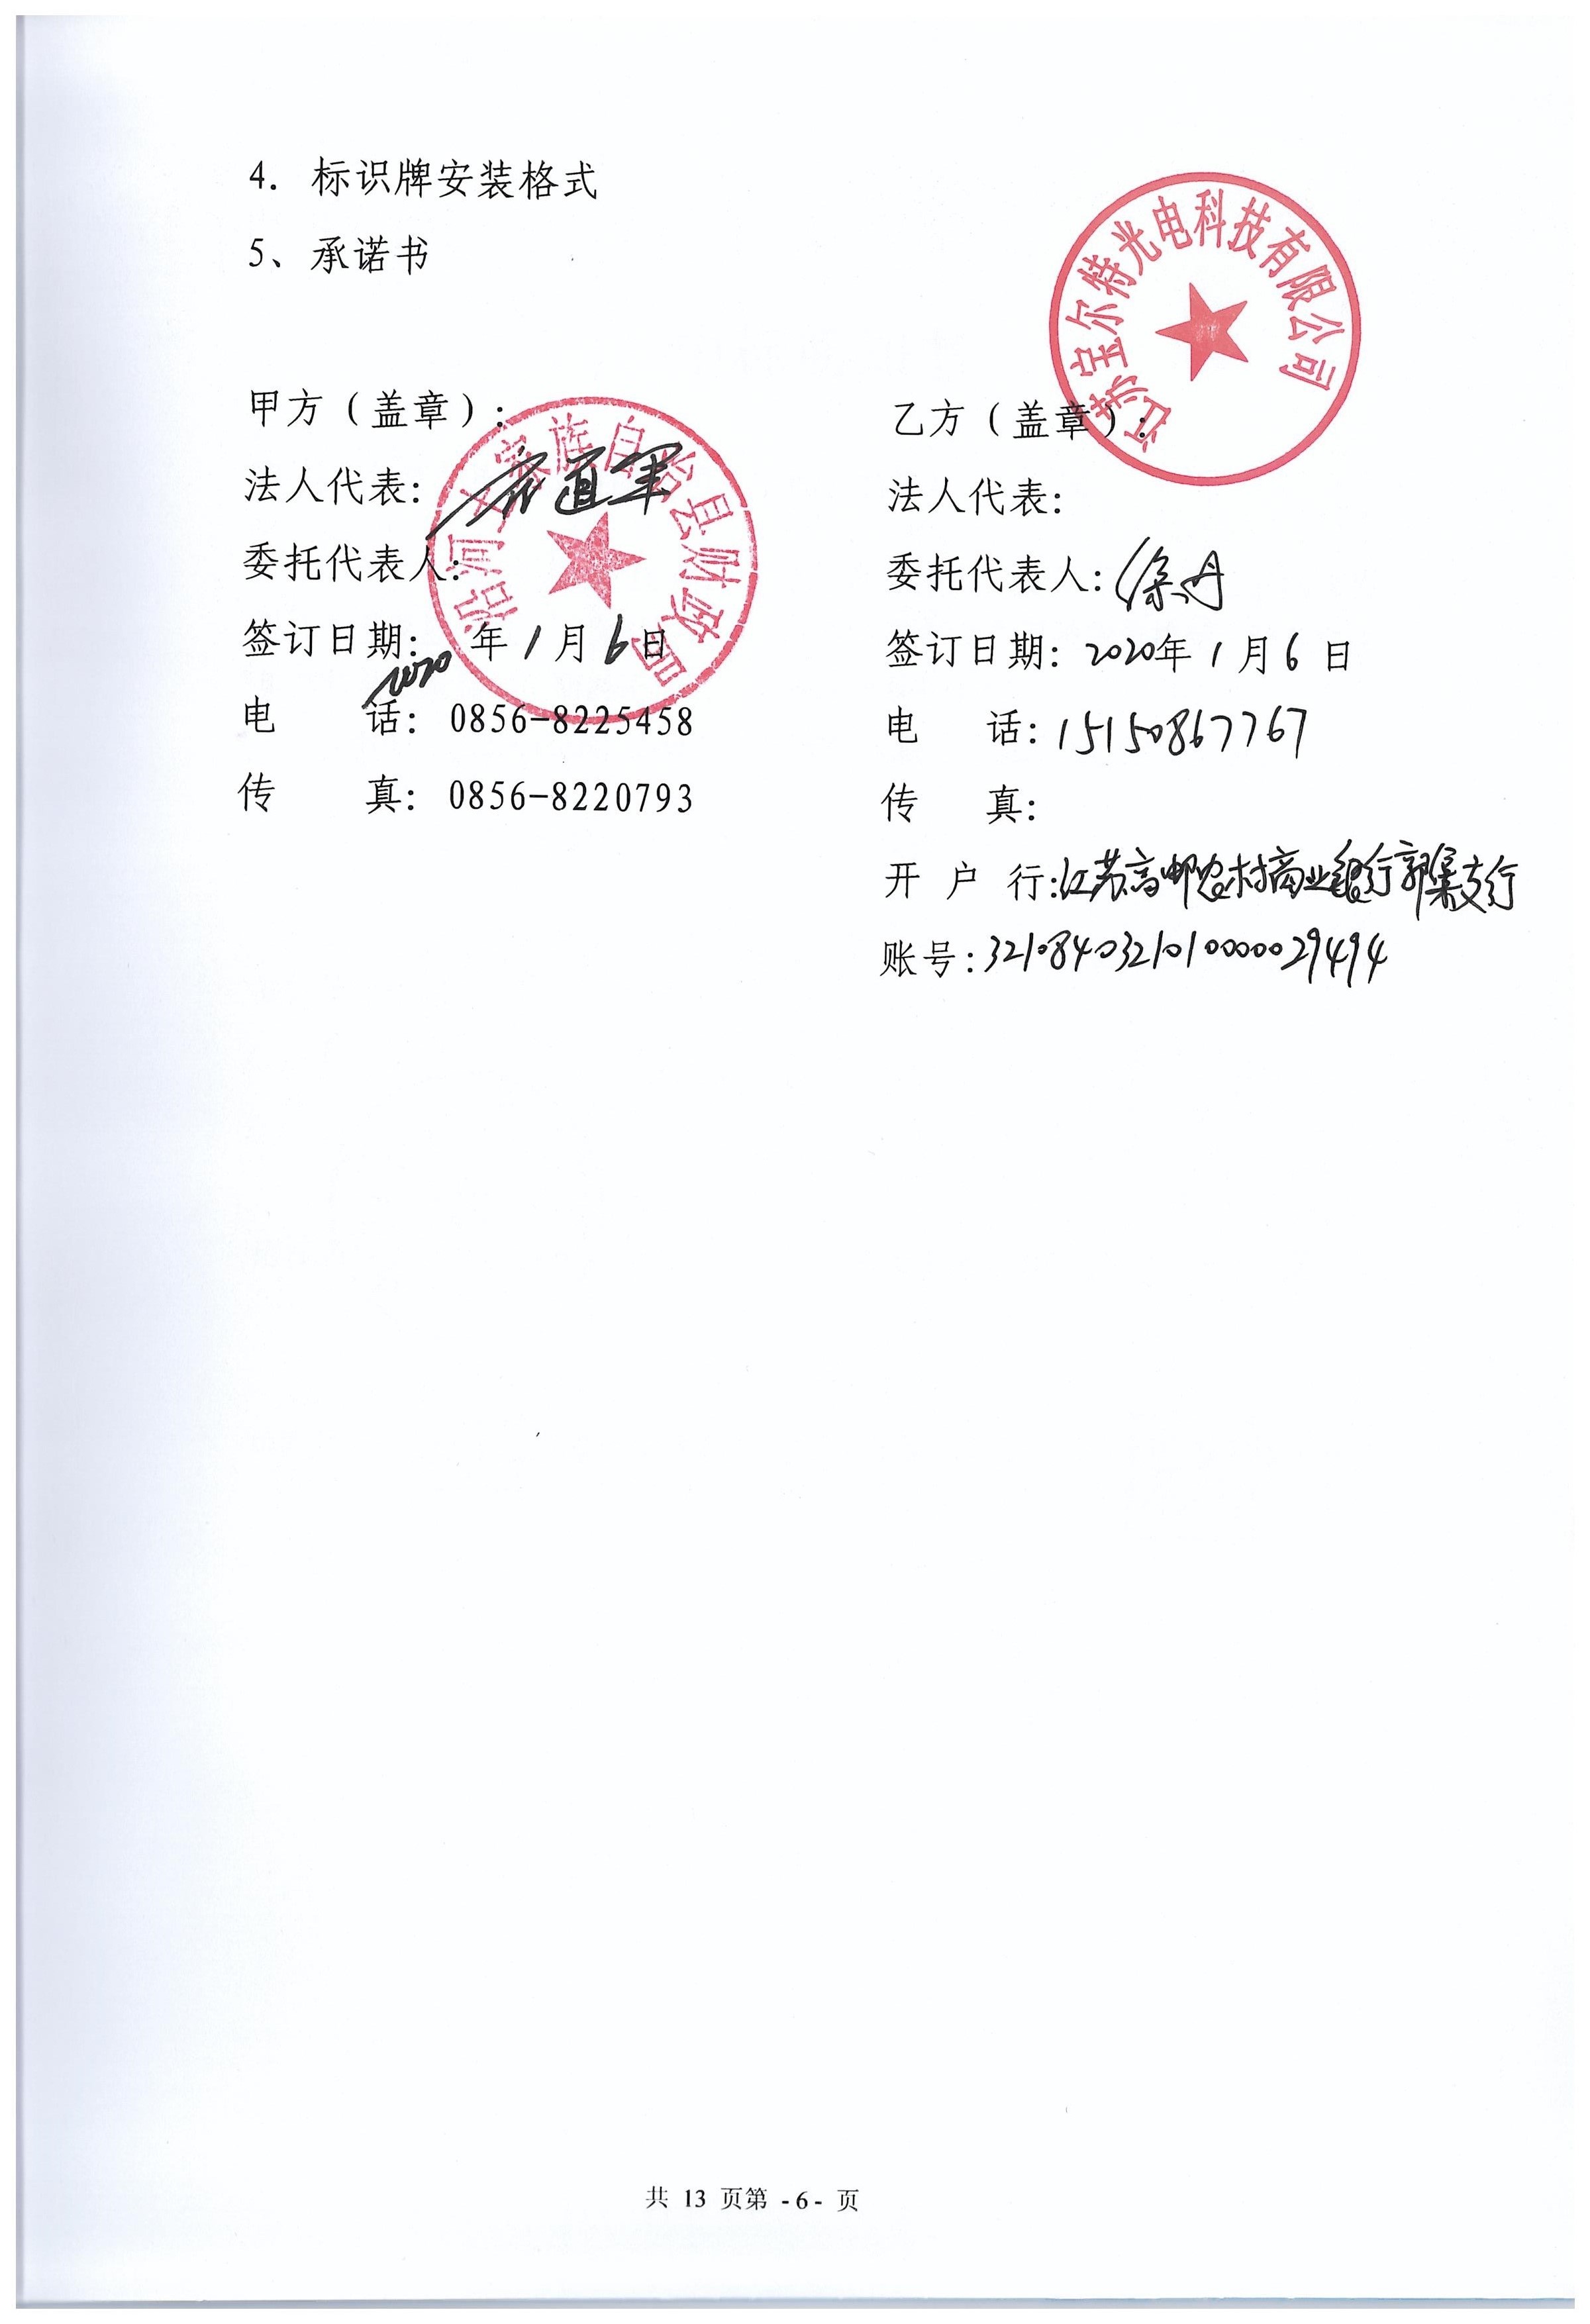 4. 标识牌安装格式
5、承诺书
江苏宝尔特光电科技有限公司
甲方（盖章）:
沿河土家族自治县财政局
法人代表:
委托代表人:
签订日期: 2020 年 1 月 6 日
电 话: 0856-8225458
传 真: 0856-8220793
乙方（盖章）:
法人代表:
委托代表人: 徐丹
签订日期: 2020年 1 月 6 日
电 话: 15150867767
传 真:
开 户 行: 江苏高邮农村商业银行郭集支行
账号: 3210840321010000029494
共 13 页第 -6- 页